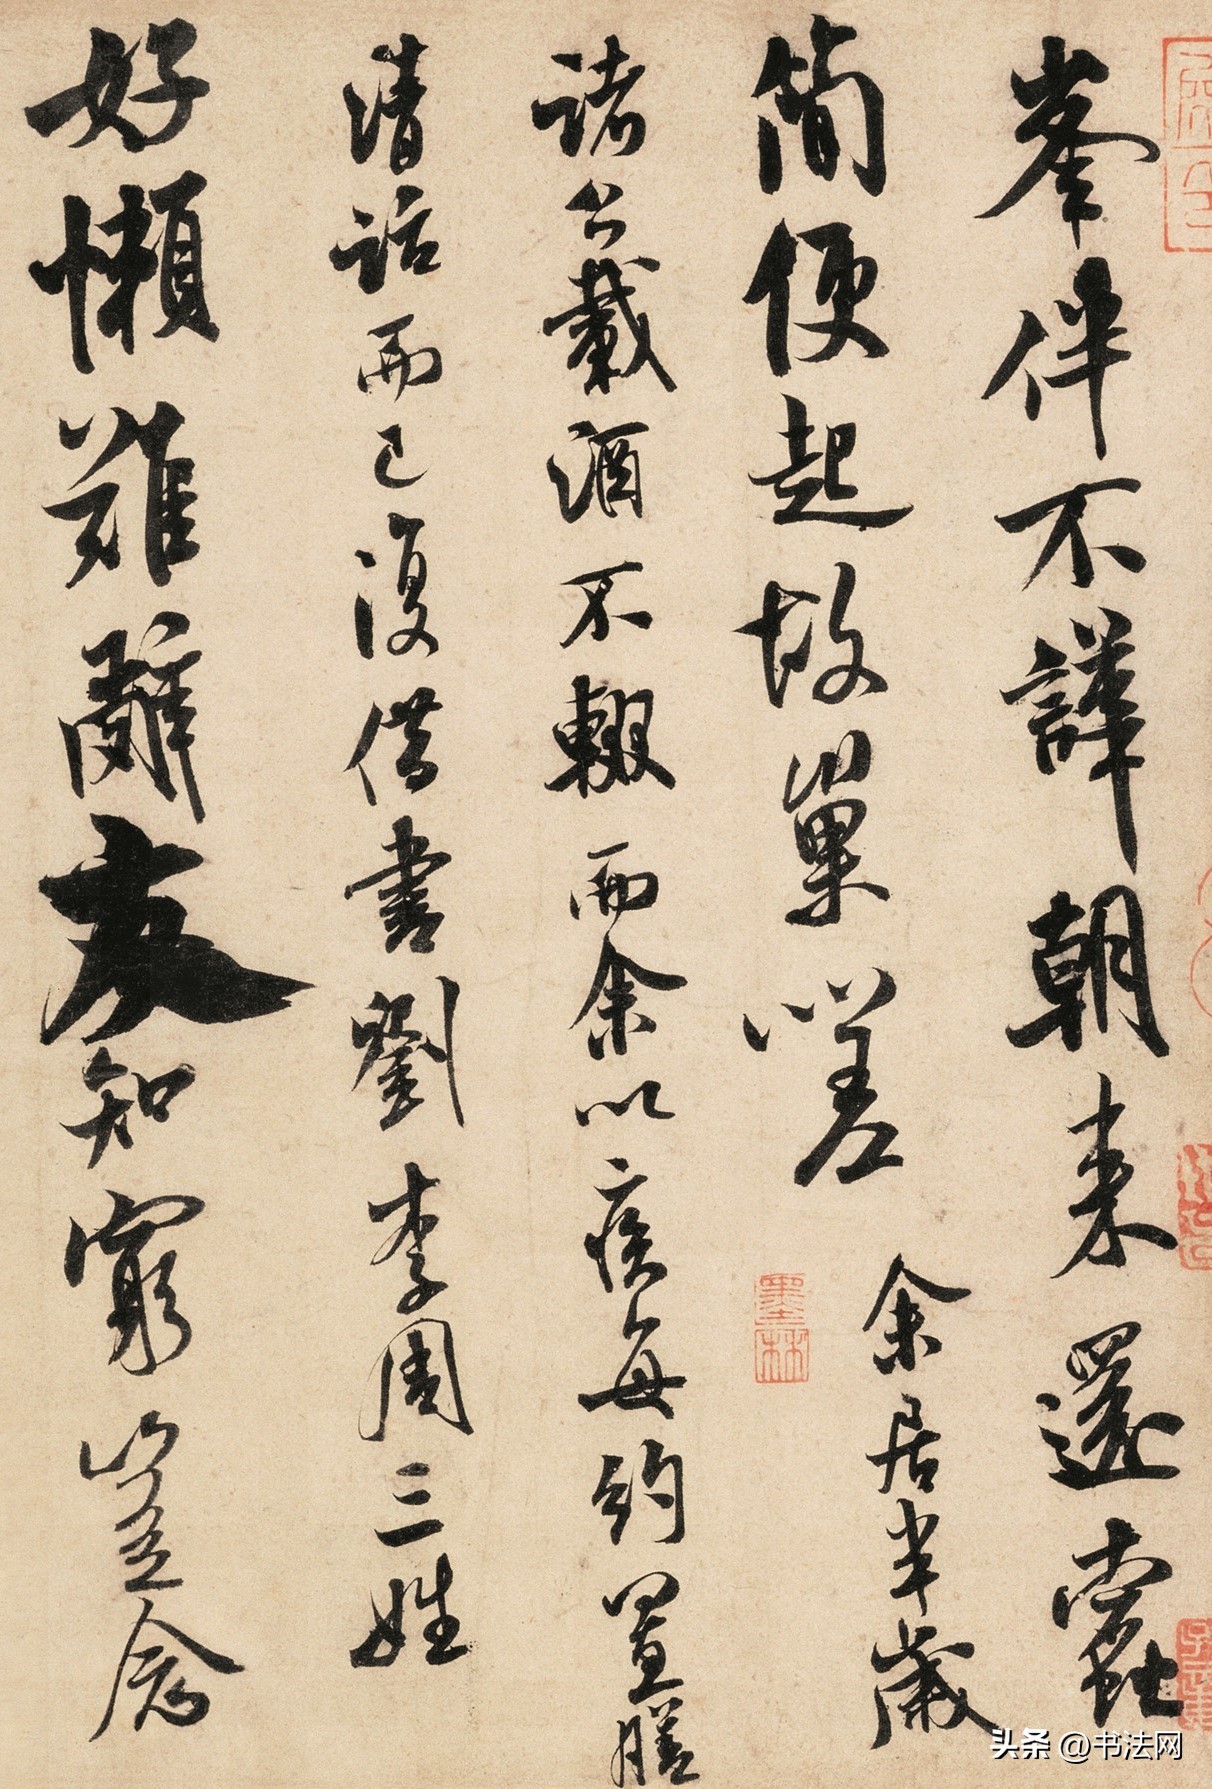 峯伴不譁朝来還蠹
簡便起故巢嗟 余居半歲
諸公載酒不輟而余以疾每約置膳
清話而已復借書劉李周三姓
好懶難辭友知窮豈念
墨林
头条 @书法网